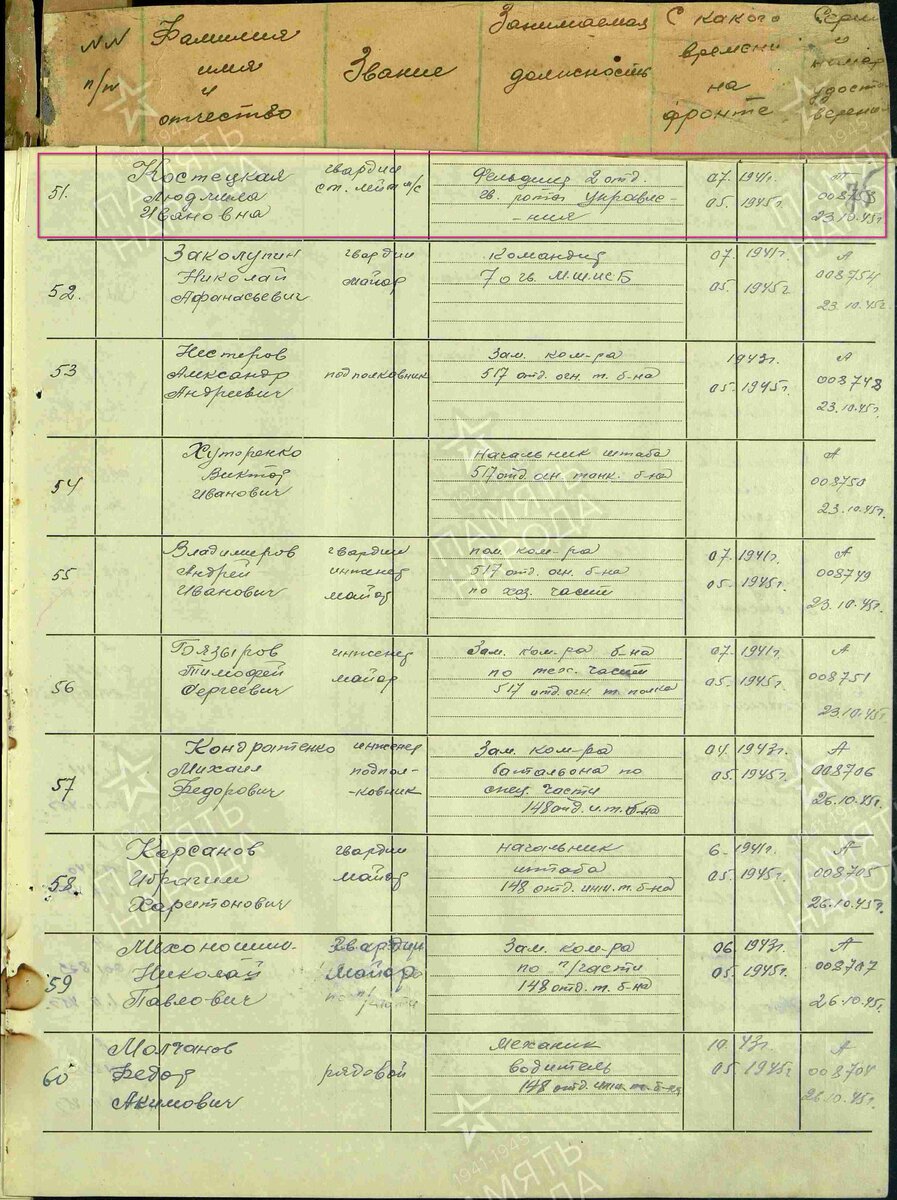 NN п/п
Фамилия имя и отчество
Звание
Занимаемая должность
С какого времени на фронте
51.
Костецкая Людмила Ивановна
гвардии ст. лейт м/с
Фельдшер 2 отд. гв. роты управле-ния
07. 1941г. 05. 1945г.
23.10.45г.
52.
Заколупин Николай Афанасьевич
гвардии майор
Командир 7 о гв. МШИСБ
07. 1941г. 05. 1945г
А 008754 23.10.45г.
53
Нестеров Александр Андреевич
подполковник
Зам. ком-ра 517 отд. огн. т. б-на
1943г. 05. 1945г.
А 008748 23.10.45г.
54
Хуторенко Виктор Иванович
Начальник штаба 517 отд. огн. танк. б-на
А 008750 23.10.45г.
55
Владимиров Андрей Иванович
гвардии инженер майор
пом. ком-ра 517 отд. огн. б-на по хоз. части
07. 1941г. 05. 1945г.
А 008749 23.10.45г.
56
Тимофей Сергеевич
инженер майор
Зам. ком-ра б-на по тех. части 517 отд. огн. т. полка
07. 1941г 05. 1945г.
А 008751 23.10.45г
57
Кондратенко Михаил Федорович
инженер подпол-ковник
Зам. ком-ра батальона по спец. части 148 отд. и.т. б-на
04. 1943г. 05. 1945г.
А 008706 26.10.45г.
58.
Карсанов Ибрагим Харитонович
гвардии майор
Начальник штаба 148 отд. инж. т. б-на
6. 1941г. 05. 1945г.
А 008705 26.10.45г.
59
Николай Павлович
Гвардии майор по п/части
Зам. ком-ра по п/части 148 отд. т. б-на
06. 1943г 05. 1945г.
А 008707 26.10.45г.
60
Молчанов Федор Акимович
рядовой
Механик водитель 148 отд. инж. т. б-на
10. 43г. 05. 1945г.
А 008704 26.10.45г.
1941-1945
ПАМЯТЬ НАРОДА